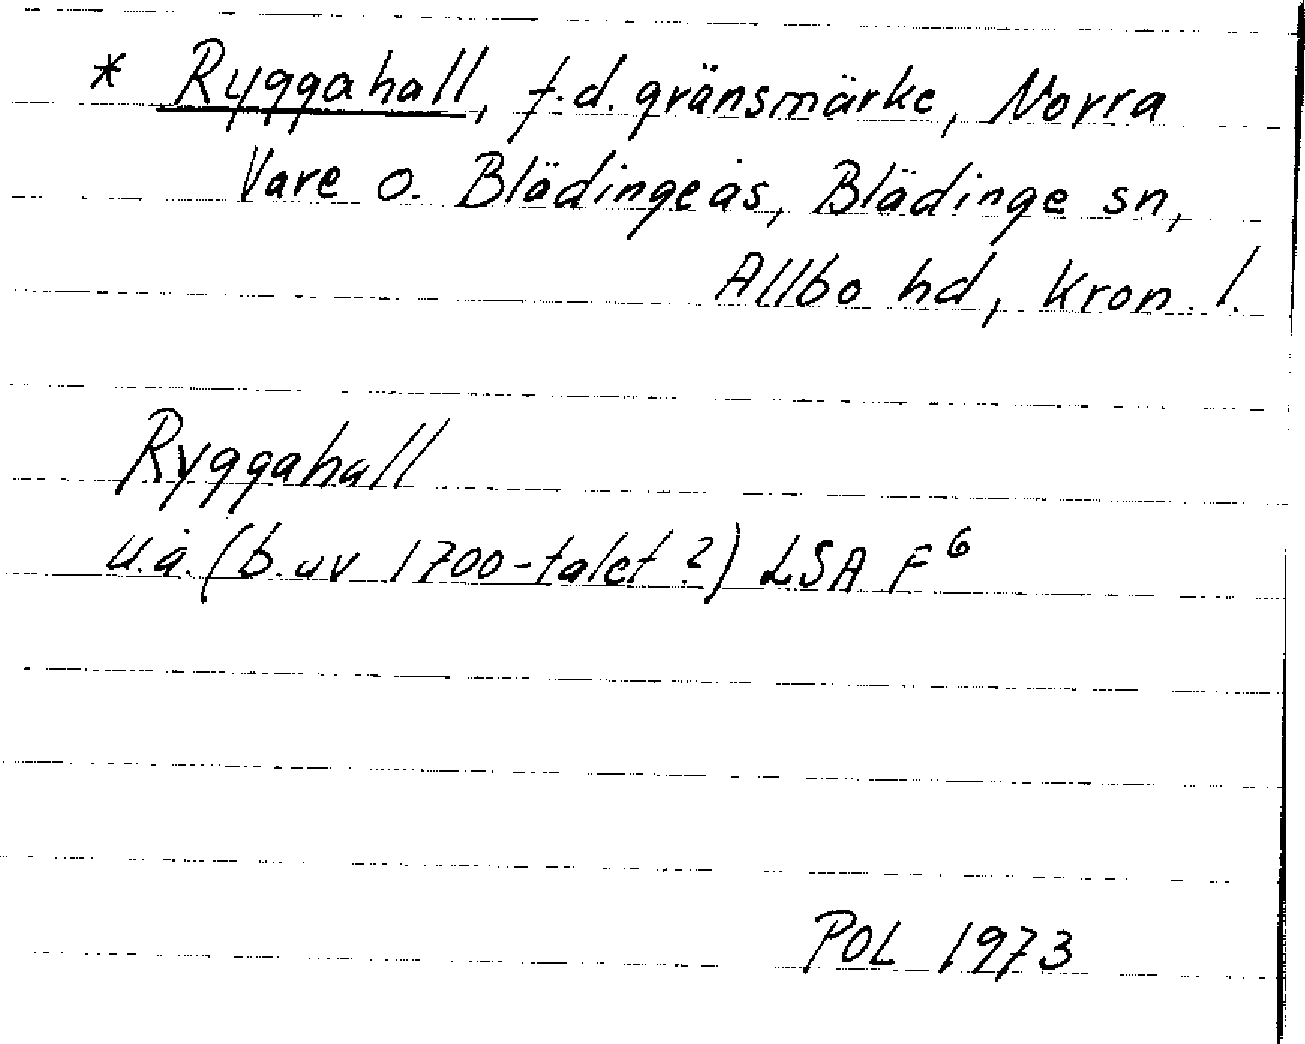 * Ryggahall, f.d. gränsmärke, Norra
Vare o. Blädingeås, Blädinge sn,
Allbo hd, Kron. l.
Ryggahall
u.å. (b. av 1700-talet?) LSA F⁶
POL 1973